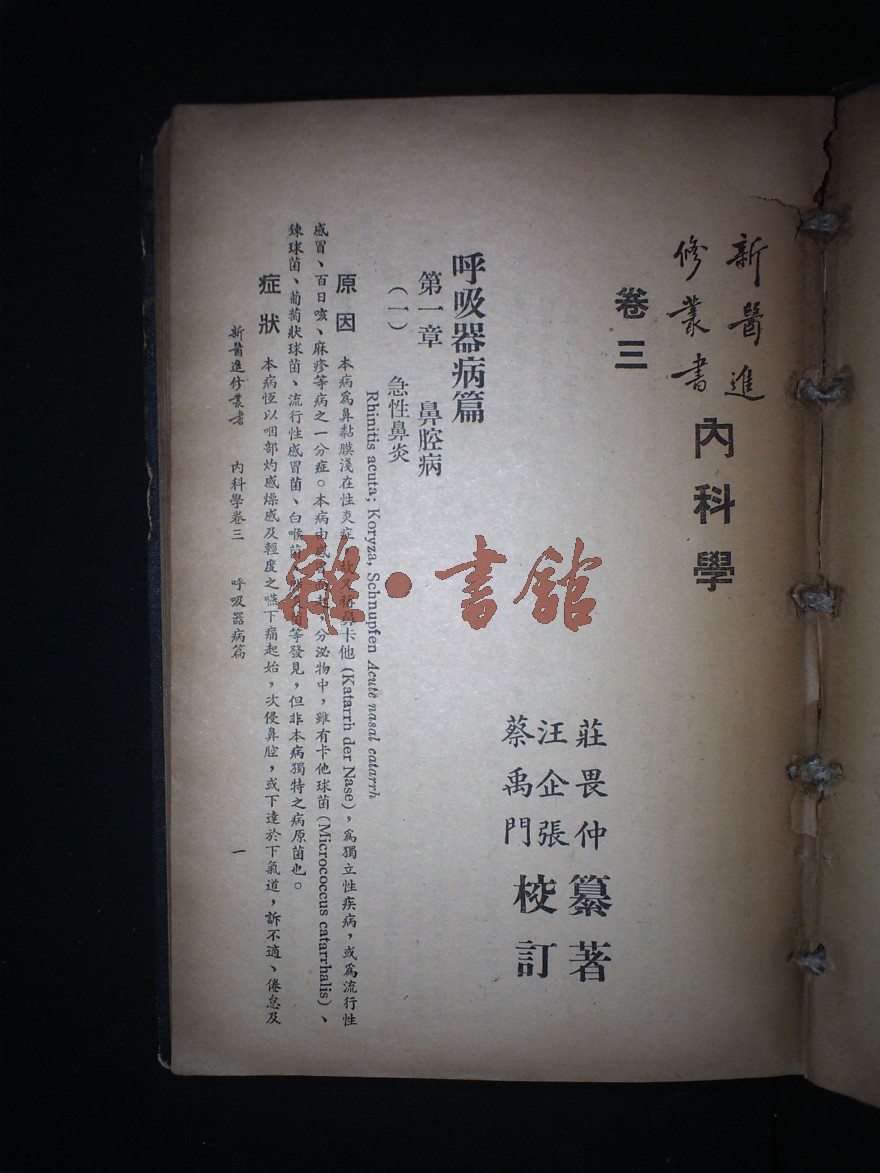 新醫進
修叢書
內科學
卷三
莊畏仲 纂著
汪企張
蔡禹門 校訂
呼吸器病篇
第一章 鼻腔病
(一) 急性鼻炎
Rhinitis acuta; Koryza, Schnupfen Acute nasal catarrh
原因 本病爲鼻黏膜淺在性炎症,故又稱鼻卡他 (Katarrh der Nase),爲獨立性疾病,或爲流行性
感冒、百日咳、麻疹等病之一分症。本病由感 分泌物中,雖有卡他球菌 (Micrococcus catarrhalis)、
鍊球菌、葡萄狀球菌、流行性感冒菌、白喉菌 等發見,但非本病獨特之病原菌也。
症狀 本病恆以咽部灼感燥感及輕度之嚥下痛起始,次侵鼻腔,或下達於下氣道,訴不適、倦怠及
新醫進修叢書 內科學卷三 呼吸器病篇 一
雜·書館